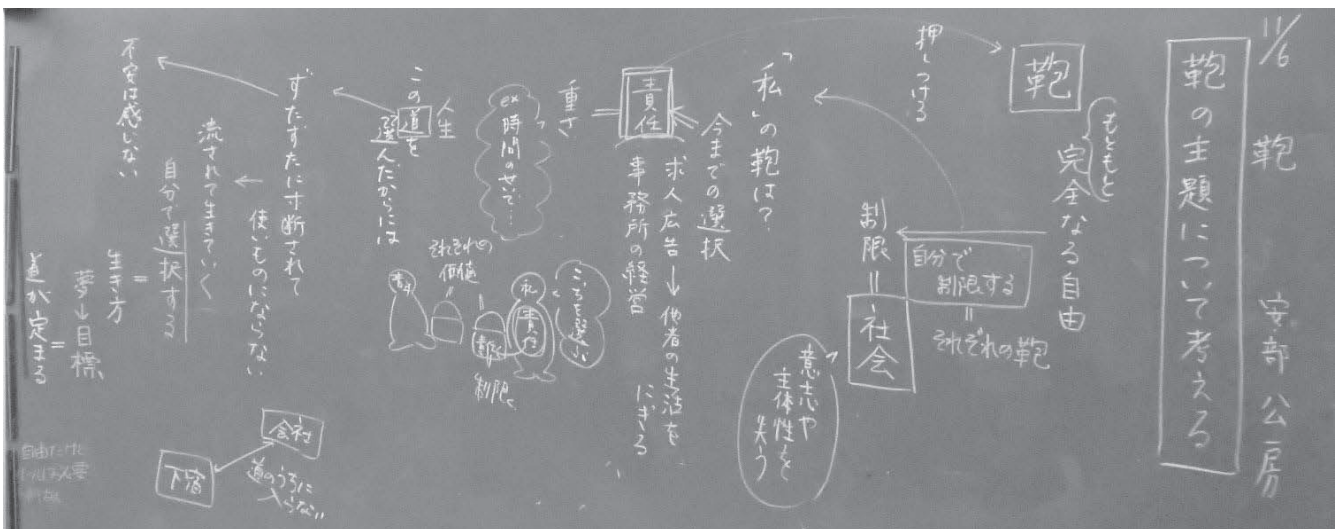 11/6 鞄 安部公房
鞄の主題について考える
鞄
もともと
完全なる自由
自分で
制限する
＝
それぞれの鞄
制限＝社会
意志や
主体性を
失う
押しつける
「私」の鞄は？
今までの選択
求人広告→他者の生活を
にぎる
事務所の経営
責任
＝
重さ
ex
時間のせいで…
こっちを選ぶ
私
責任
制限
それぞれの
価値
人生
この道を
選んだからには
ずたずたに寸断されて
使いものにならない
流されて生きていく
自分で選択する
＝
生き方
夢→目標
＝
道が定まる
不安は感じない
会社
下宿
道のうちに
入らない
自由だけど